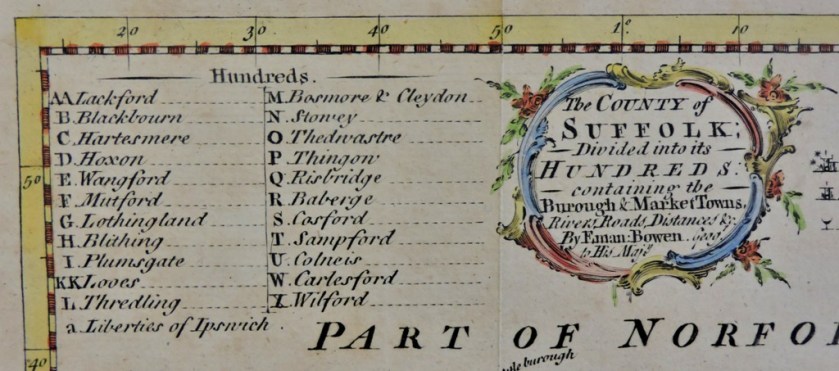 20 30 40 50 1º. 10
Hundreds.
AA Lackford
B. Blackbourn
C. Hartesmere
D. Hoxon
E. Wangford
F. Mutford
G. Lothingland
H. Blithing
I. Plumsgate
KK Looes
L. Thredling
a. Liberties of Ipswich.
M. Bosmore & Cleydon
N. Stowey
O. Thedwastre
P. Thingow
Q. Risbridge
R. Baberge
S. Cosford
T. Sampford
U. Colneis
W. Carlesford
X. Wilford
The COUNTY of
SUFFOLK;
Divided into its
HUNDREDS:
containing the
Burough & Market Towns,
Rivers, Roads, Distances &c.
By Eman: Bowen Geogr.
to His Maj.ty
50
40
PART OF NORFO